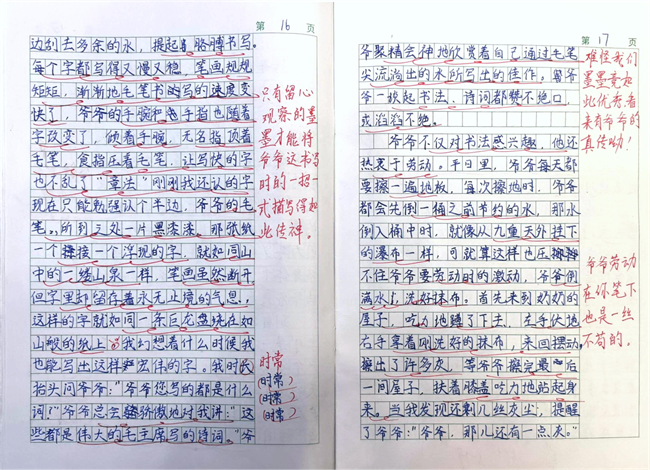 第 16 页
边刮去多余的水，提起胳膊书写。
每个字都写得又慢又稳，笔画规规
矩矩，渐渐地毛笔书写的速度变
快了，爷爷的手腕和手指也随着
字改变了，倾着手腕，无名指顶着
毛笔，食指压着毛笔，让写快的字
也不乱了"章法"刚刚我还认的字
现在只能勉强认个半边，爷爷的毛
笔，所到之处一片黑漆漆。那张纸
一个接一个浮现的字，就如同山
中的一缕山泉一样，笔画虽然断开
但字里却留存着永无止境的气息，
这样的字就如同一条巨龙盘绕在如
山般的纸上。我幻想着什么时候我
也能写出这样宏伟的字。我时
抬头问爷爷："爷爷您写的都是什么
词？"爷爷总会骄傲地对我讲："这
些都是伟大的毛主席写的诗词。"爷
只有留心
观察的墨
墨才能将
爷爷这书写
时的一招一
式描写得如
此传神。
时常
(时常)
(时常)
(时常)
第 17 页
爷聚精会神地欣赏着自己通过毛笔
尖流淌出的水所写出的佳作。每爷
爷一谈起书法、诗词都赞不绝口，
或滔滔不绝。
爷爷不仅对书法感兴趣，他还
热衷于劳动。平日里，爷爷每天都
要擦一遍地板，每次擦地时，爷爷
都会先倒一桶之前节约的水，那水
倒入桶中时，就像从九重天外挂下
的瀑布一样，可就算这样也压
不住爷爷要劳动时的激动，爷爷倒
满水，洗好抹布。首先来到奶奶的
屋子，吃力地蹲了下去，左手伏地
右手拿着刚洗好的抹布，来回摆动，
擦出了许多灰，等爷爷擦完最后
一间屋子，扶着膝盖吃力地站起身
来。当我发现还剩几丝灰尘，提醒
了爷爷："爷爷，那儿还有一点灰。"
难怪我们
墨墨竟如
此优秀者
来有爷爷的
真传呦！
爷爷劳动
在你笔下
也是一丝
不苟的。